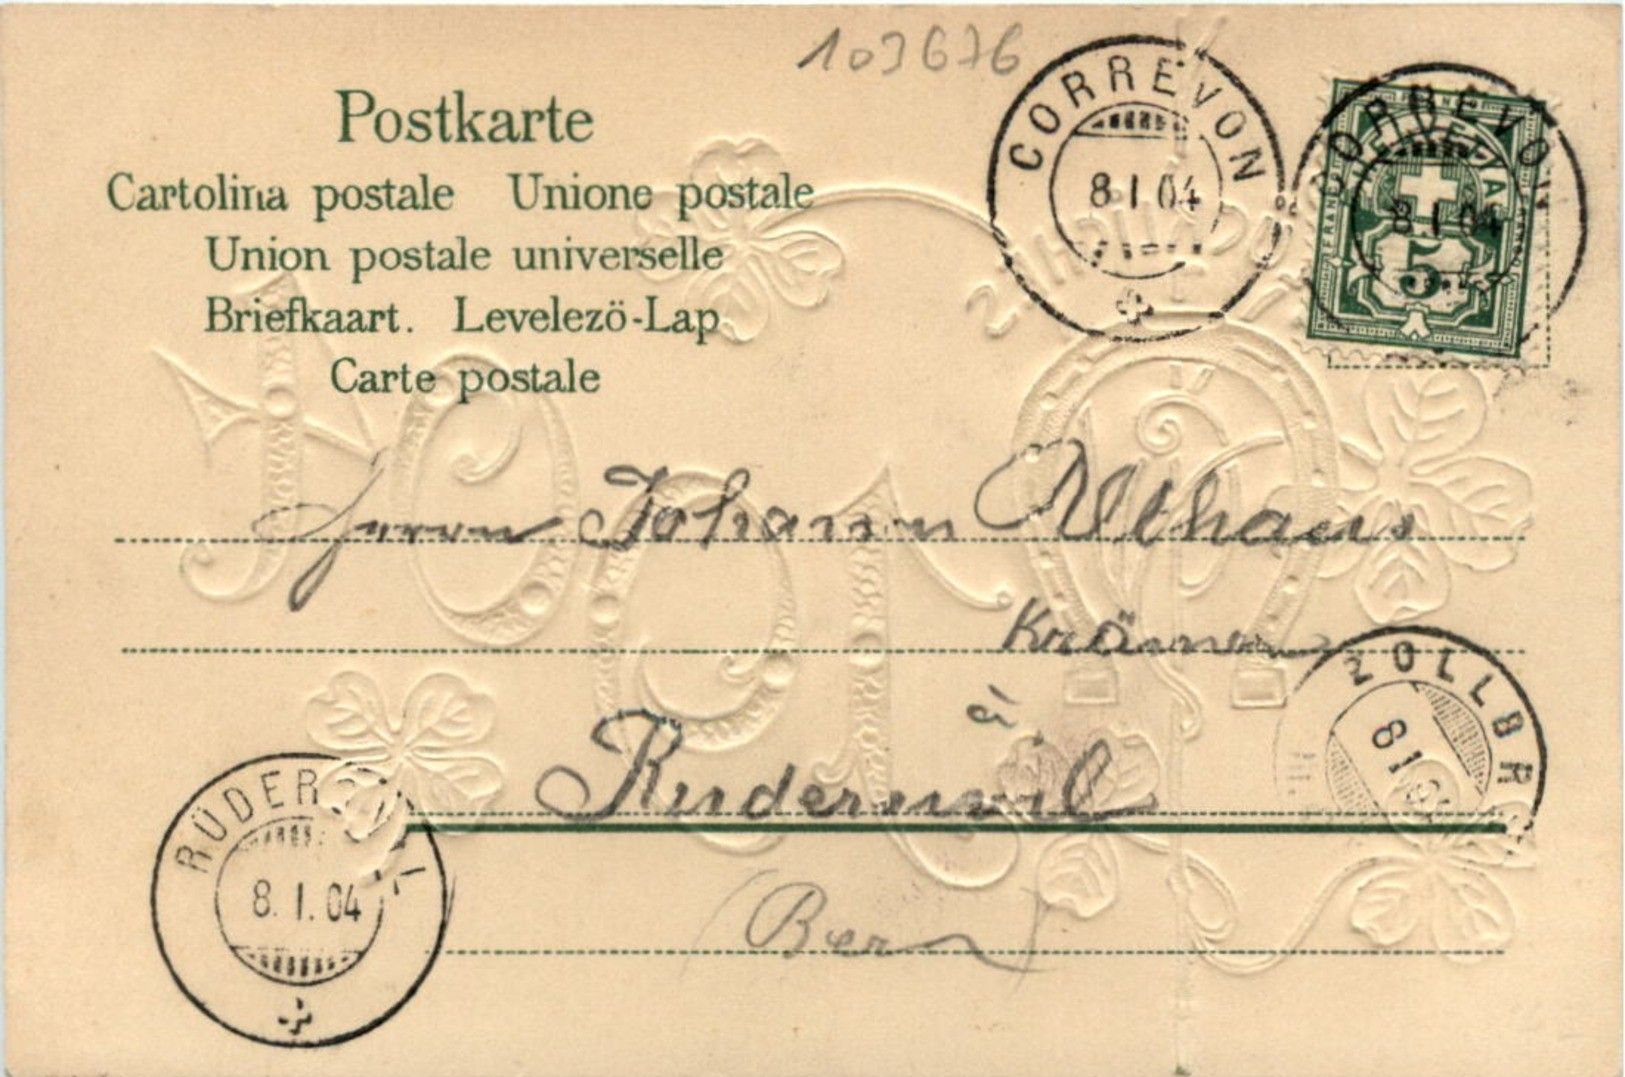 103676
Postkarte
Cartolina postale Unione postale
Union postale universelle
Briefkaart. Levelezö-Lap
Carte postale
CORREVON
8.I.04
CORREVON
8.I.04
FRANCO
5
Herrn Johann Althaus
Krämer
à
Ruderswil
(Bern)
ZOLLBR
8 I 04
RÜDER IL
8.I.04